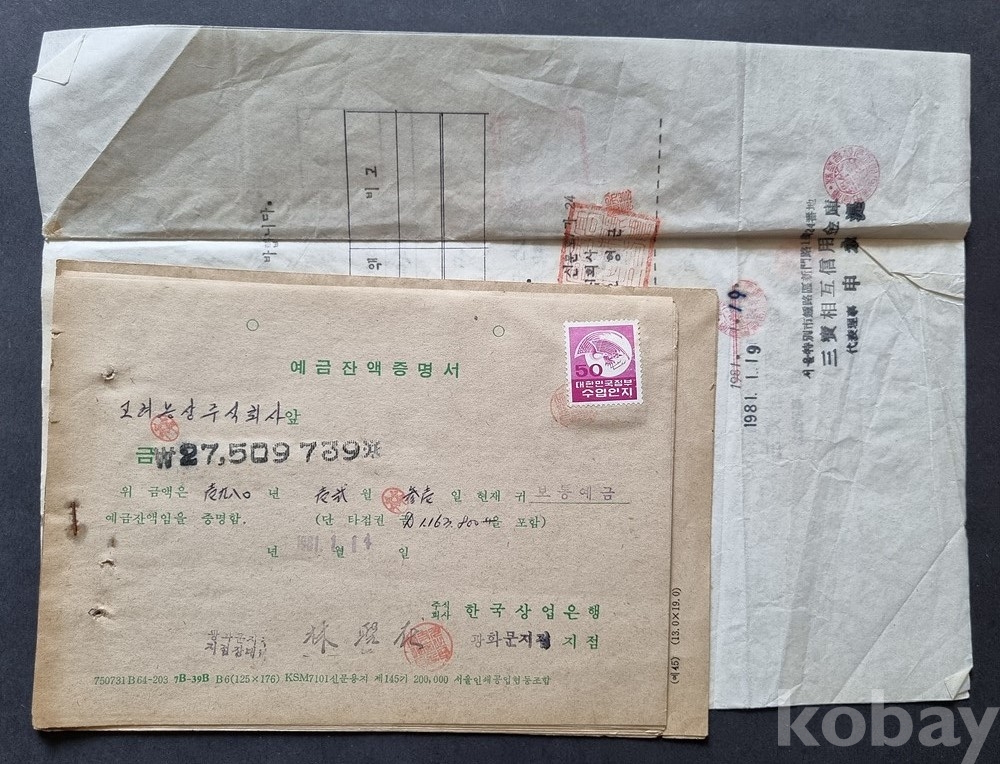 바랍니다.
비고
액
서울特別市鍾路區新門路
三寶相互信用金庫
代表理事 申
1981. 1. 19.
1981. 1. 19
50
대한민국정부
수입인지
예금잔액증명서
농상주식회사앞
금₩27,509739
위 금액은 壱九八0 년 壱弐 월 参壱 일 현재 귀 보통예금
예금잔액임을 증명함. (단 타점권 금 을 포함)
1981. 1. 14
년 월 일
주식회사 한국상업은행
광화문지점 지점
林
750731B64-203 7B-39B B6(125×176) KSM7101신문용지 제145기 200,000 서울인쇄공업협동조합
(13.0×19.0)
kobay